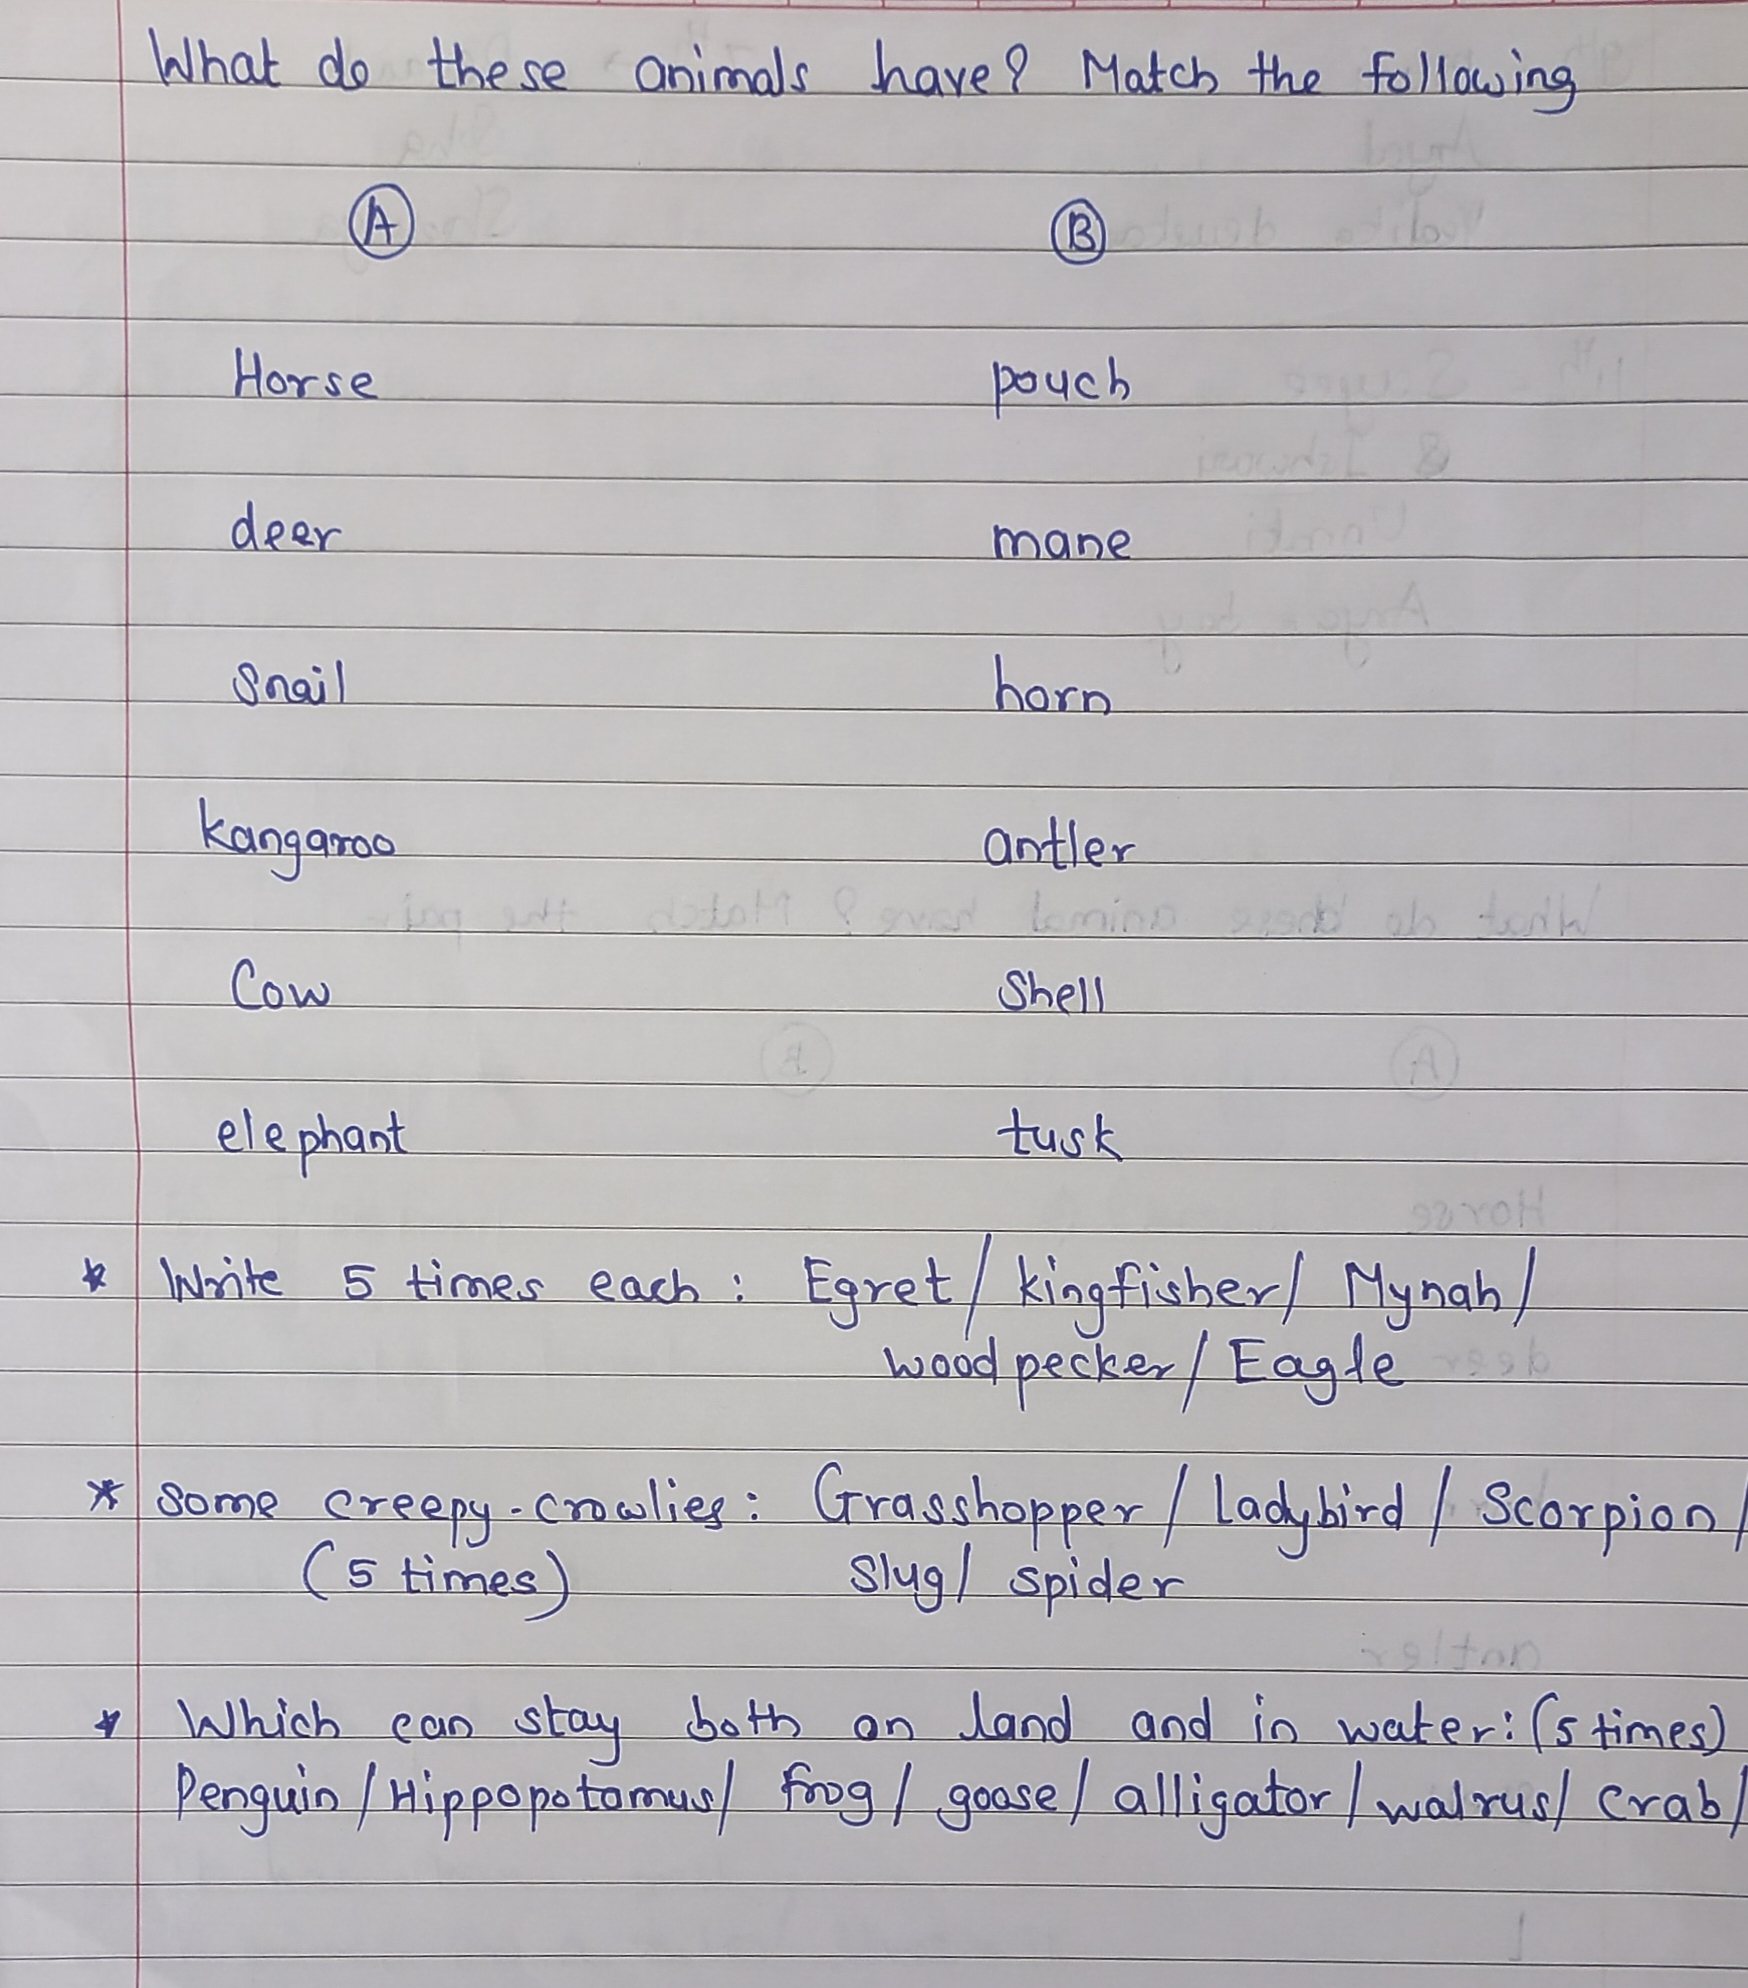 What do these animals have? Match the following
A B
Horse pouch
deer mane
Snail horn
kangaroo antler
Cow Shell
elephant tusk
* Write 5 times each : Egret / kingfisher / Mynah /
woodpecker / Eagle
* Some creepy-crowlies : Grasshopper / Ladybird / Scorpion /
(5 times) Slug / spider
* Which can stay both on land and in water : (5 times)
Penguin / Hippopotamus / frog / goose / alligator / walrus / crab /